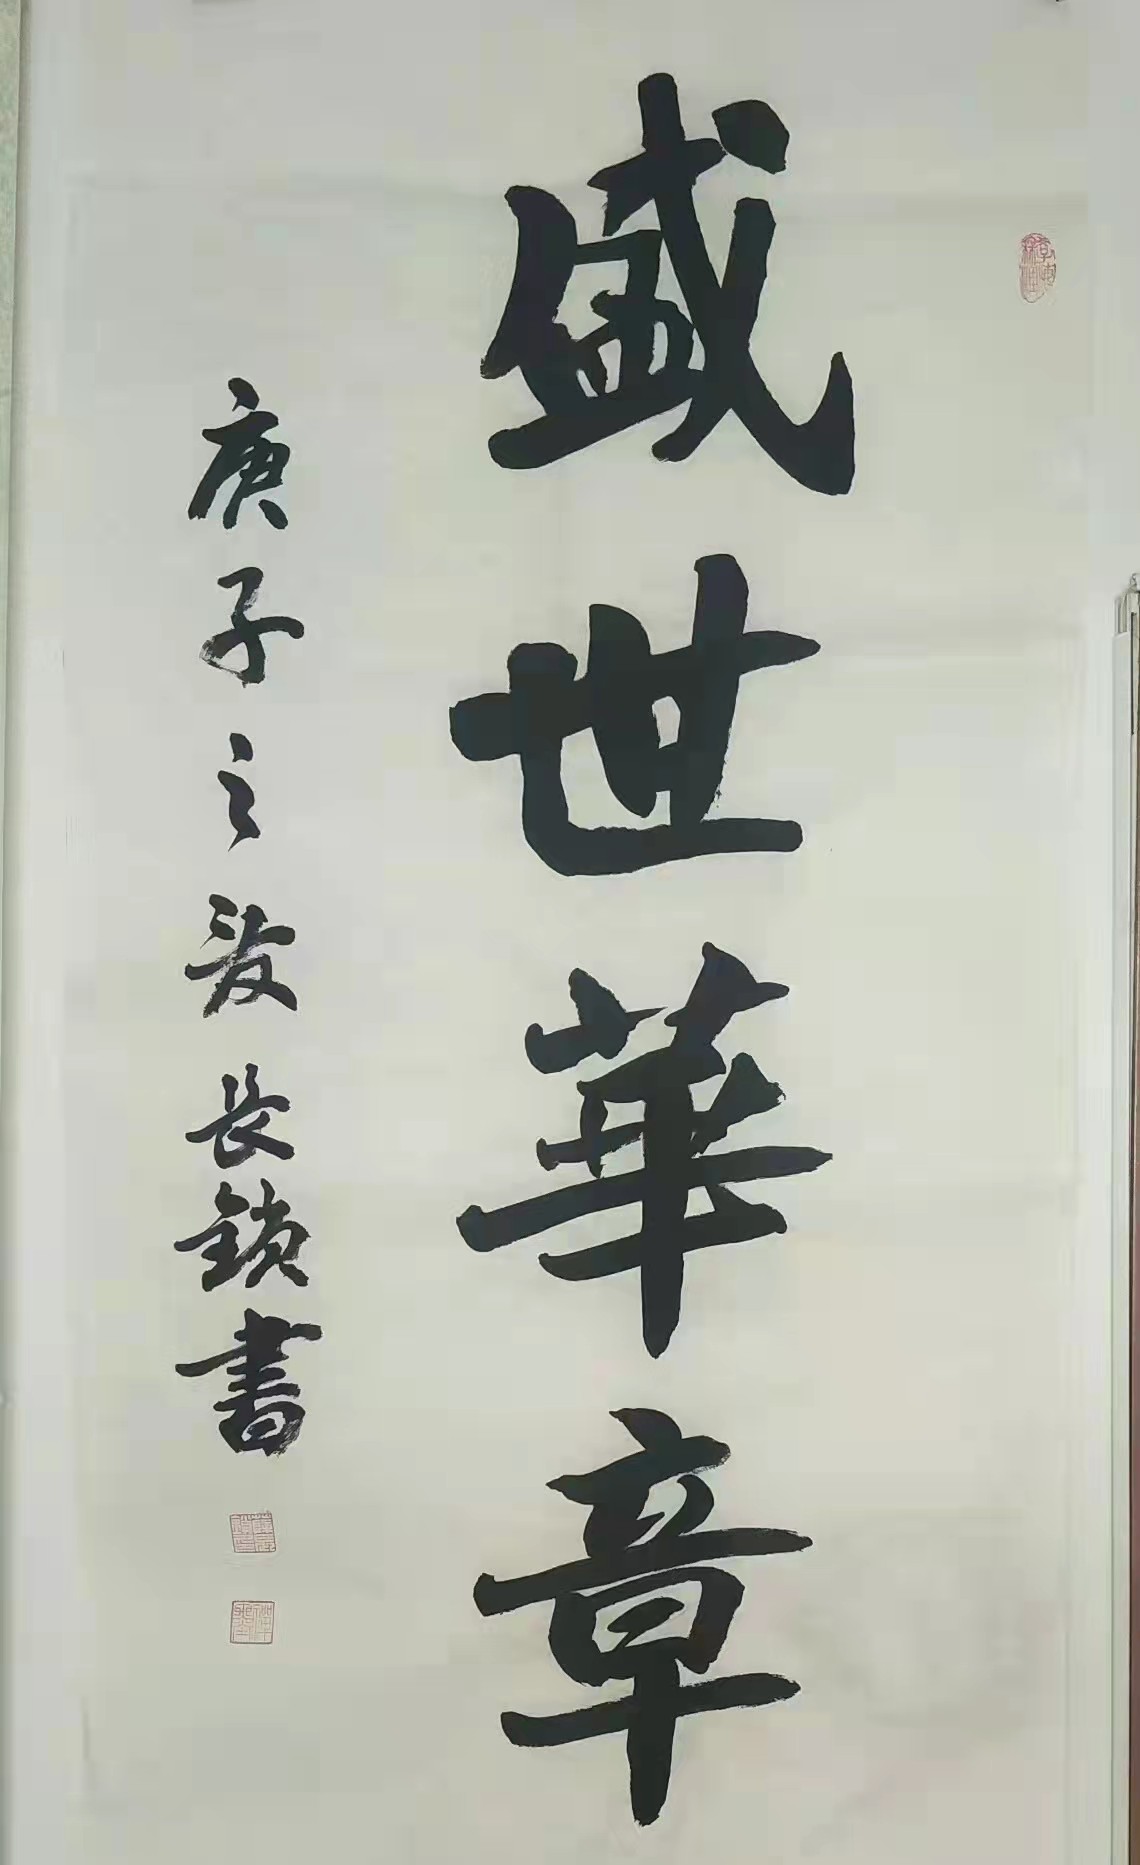 盛世華章
庚子之发長鎖書